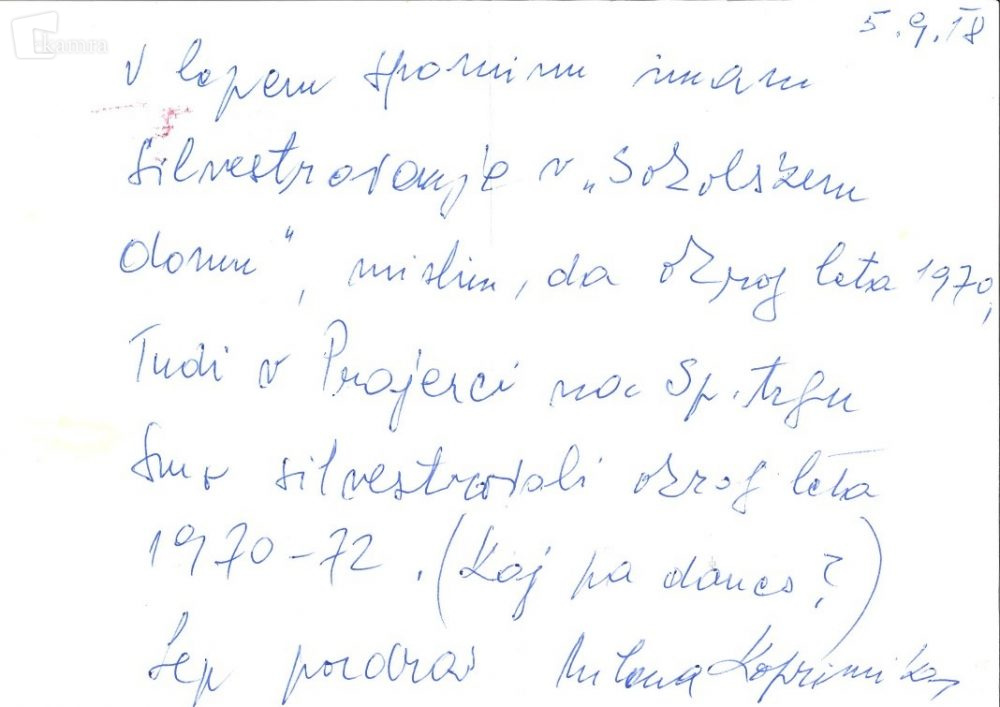 kamra
5.9.18
V lepem spominu imam
silvestrovanje v „Sokolskem
domu“, mislim, da okrog leta 1970,
Tudi v Prajerci na Sp. trgu
smo silvestrovali okrog leta
1970-72. (Kaj pa danes?)
Lep pozdrav Milena Koprivnikar